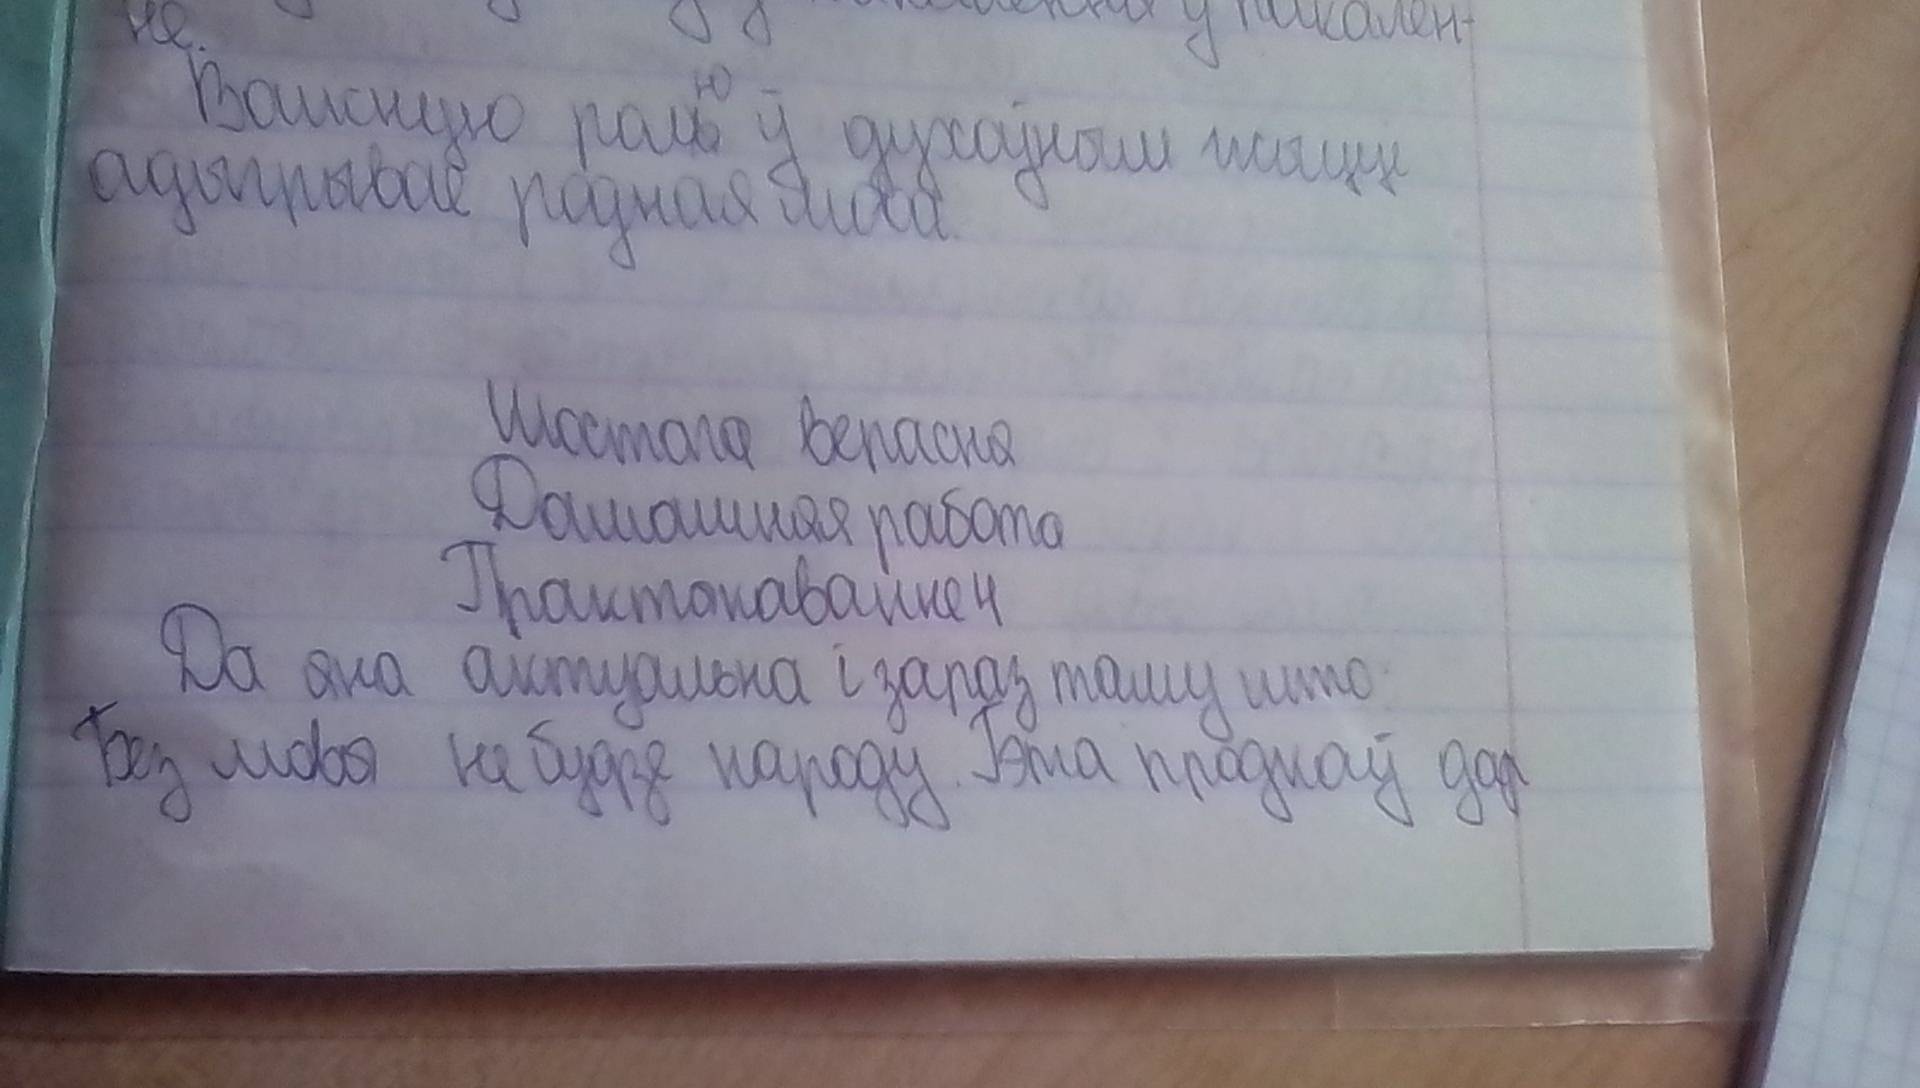 у пакален-
не.
Важную ролю ў духоўным жыцці
адыгрывае родная мова.
Шостага верасня
Дамашняя работа
Практыкаванне 4
Да яна актуальна і зараз таму што:
Без мовы не будзе народу. Гэта продкаў дар